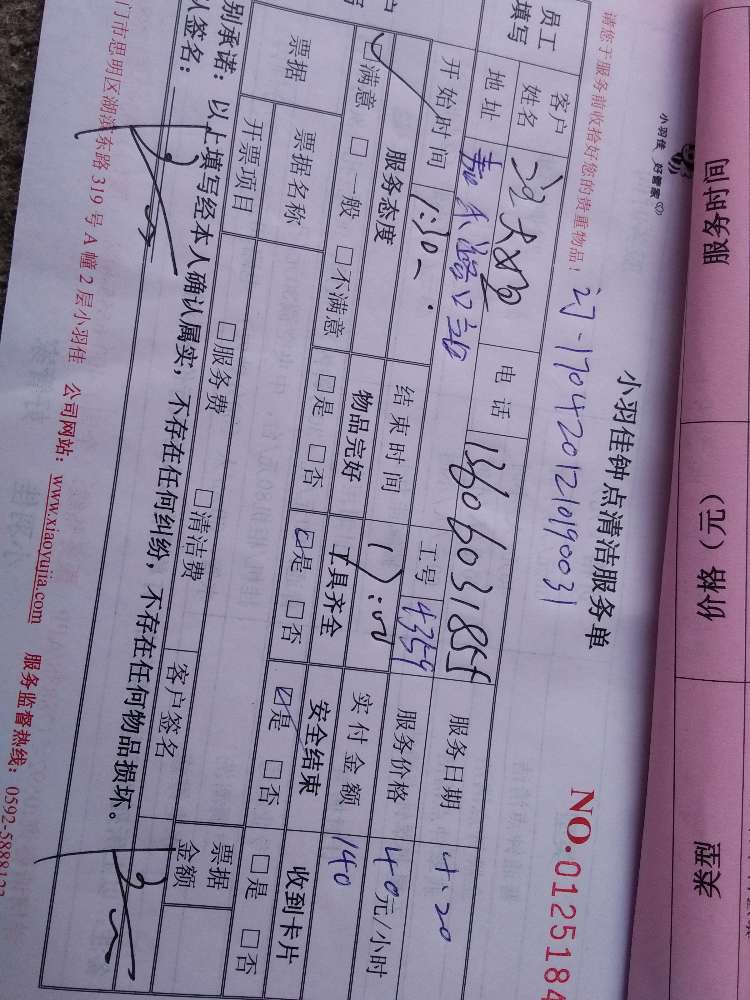 服务时间
价格（元）
类型
小羽佳 好管家
小羽佳钟点清洁服务单
NO.0125184
请您于服务前收拾好您的贵重物品！
1704201210190031
员工填写
客户姓名
电话
13606031855
服务日期
4.20
地址
工号
4359
服务价格
40元/小时
开始时间
1:30
结束时间
实付金额
140
服务态度
物品完好
工具齐全
安全结束
收到卡片
☑满意 □一般 □不满意
□是 □否
☑是 □否
☑是 □否
□是 □否
票据
票据名称
□服务费 □清洁费
票据金额
开票项目
客户签名
别承诺：以上填写经本人确认属实，不存在任何纠纷，不存在任何物品损坏。
人签名：
门市思明区湖滨东路319号A幢2层小羽佳 公司网站：www.xiaoyujia.com 服务监督热线：0592-5888122